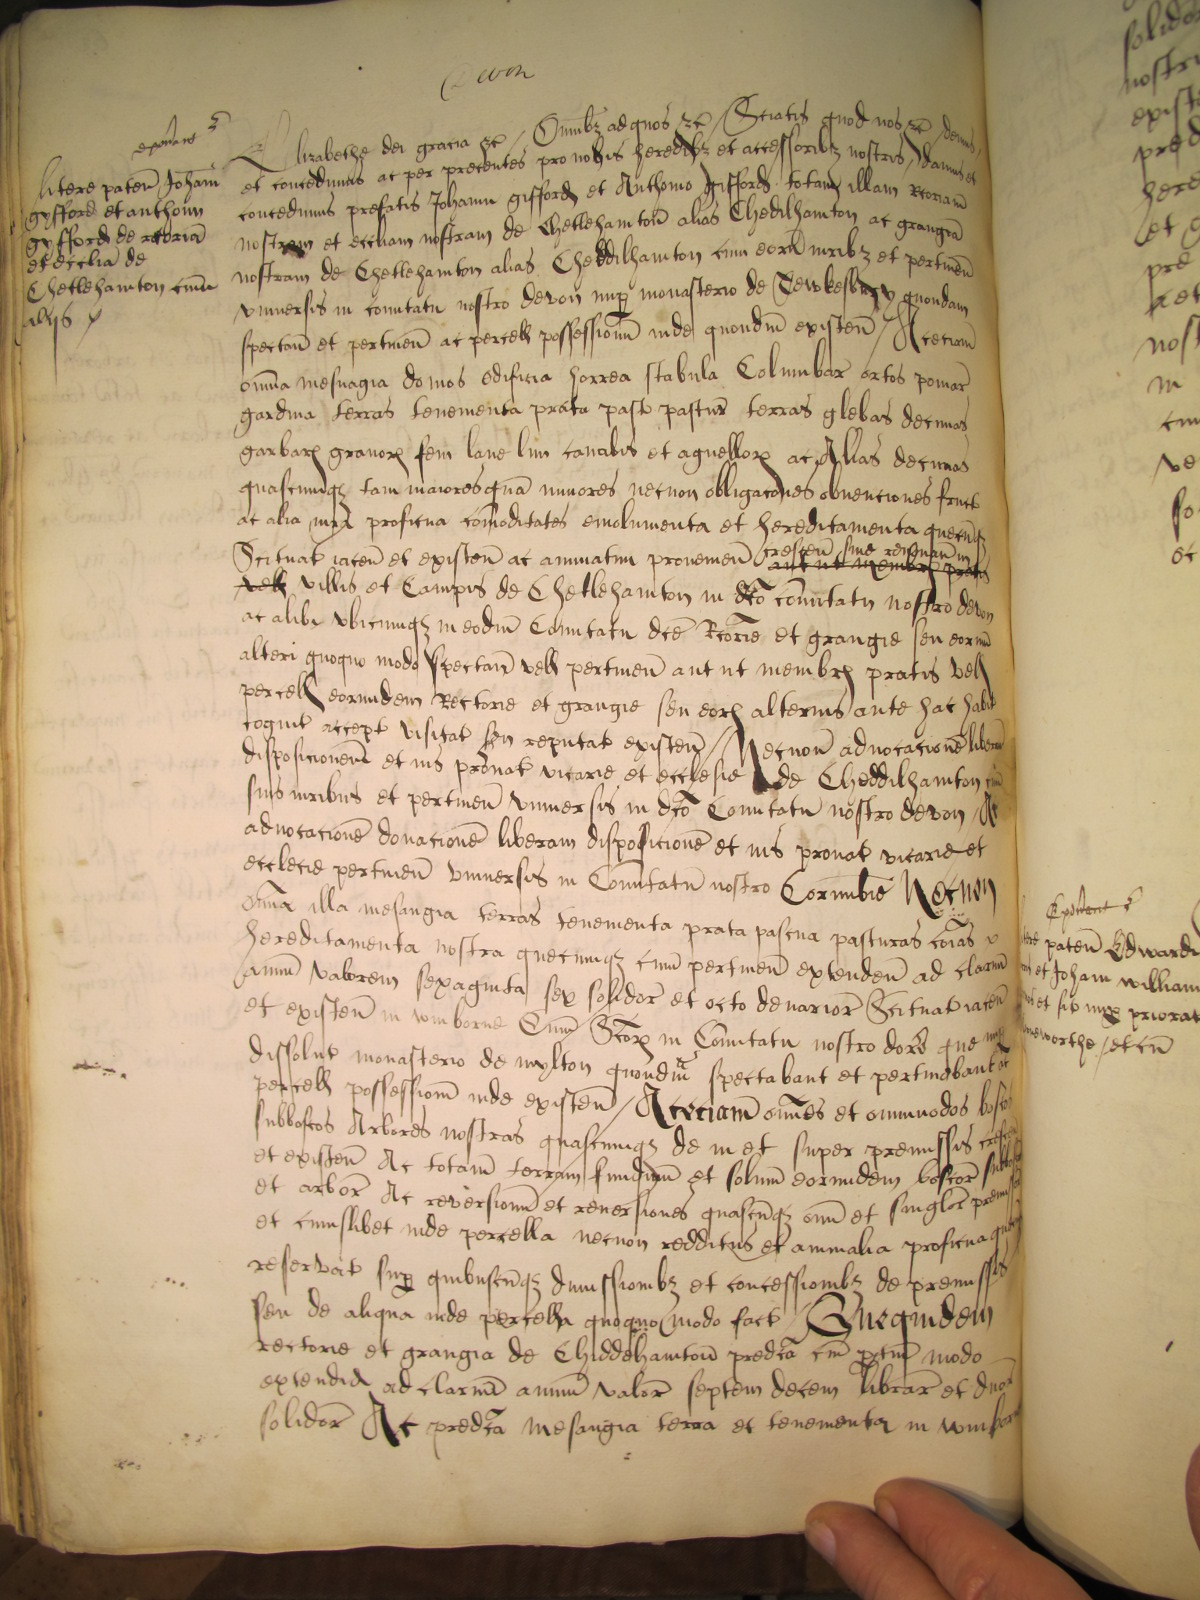 Devon
litere paten Johani
gyfford et anthoni
gyfford de rectoria
et ecclia de
Chetlehamton cum
alijs
Elizabethe dei gracia &c Omnibz ad quos &c Sciatis quod nos &c dedimus
et concedimus ac per presentes pro nobis heredibz et successoribz nostris damus et
concedimus prefatis Johanni gifford et Anthonio gifford totam illam Rectoriam
nostram et eccliam nostram de Chetlehamton alias Chedilhamton ac grangiā
nostram de Chetlehamton alias Cheddilhamton cum eorū iuribz et pertineñ
vniuersis in comitatu nostro devon nup monasterio de Tewkesbury quondam
spectañ et pertineñ ac percell possessionū inde quondm existeñ Aceciam
omnia mesuagia domos edificia horrea stabula Columbar ortos pomar
gardina terras tenementa prata past pastur terras glebas decimas
garbarum granorum feni lane lini canabis et agnellorum ac Alias decimas
quascumqz tam maiores quā minores necnon obligaciones obuenciones fruct
ac alia proficua comoditates emolumenta et hereditamenta quecūqz
Scituat iaceñ et existeñ ac annuatim proueneñ cresceñ siue renouañ in
villis et Campis de Chetlehamton in dcō comitatu nostro devon
ac alibi vbicumqz in eodm Comitatu dcē Rcorie et grangie seu eorum
alteri quoquo modo spectañ vell pertineñ aut ut membrum pratis vell
percell eorumdem Rectorie et grangie seu eorum alterius ante hac habit
cognit accept visitat seu reputat existeñ Necnon aduocacionē liberam
disposicionem et ius pronat vicarie et ecclesie de Cheddilhamton cum
suis iuribus et pertineñ vniuersis in dcō Comitatu nostro devon Ac
aduocacionē donacionē liberam disposicionē et ius pronat vicarie et
ecclecie pertineñ vniuersis in Comitatu nostro Cornubie Necnon
omnia illa mesuagia terras tenementa prata pascua pasturas coias
hereditamenta nostra quecumqz cum pertineñ extendeñ ad clarum
annuū valorem sexaginta sex solidor et octo denarior Scituat iaceñ
et existeñ in winborne in Comitatu nostro dors que
dissolut monasterio de mylton quondm spectabant et pertinebant ac
percell possessionū inde existeñ Aceciam omnes et omnimodos boscos
subboscos Arbores nostras quascumqz de in et super premissis cresceñ
et existeñ Ac totam terram fundum et solum eorumdem boscor subboscor
et arbor Ac reversionm et reuersiones quascūqz omū et singlor premissor
et cuiuslibet inde percella necnon redditus et annualia proficua
reservat sup quibuscūqz dimissionibz et concessionibz de premissis
seu de aliqua inde percella quoquo modo fact Quequidem
rectorie et grangia de Chiddehamton predcā cm ptiñ modo
extendit ad clarum annuū valor septem decem librar et duor
solidor Ac predcā mesuagia terra et tenementa in winborn
paten Edwardi
et Johani william
priorat